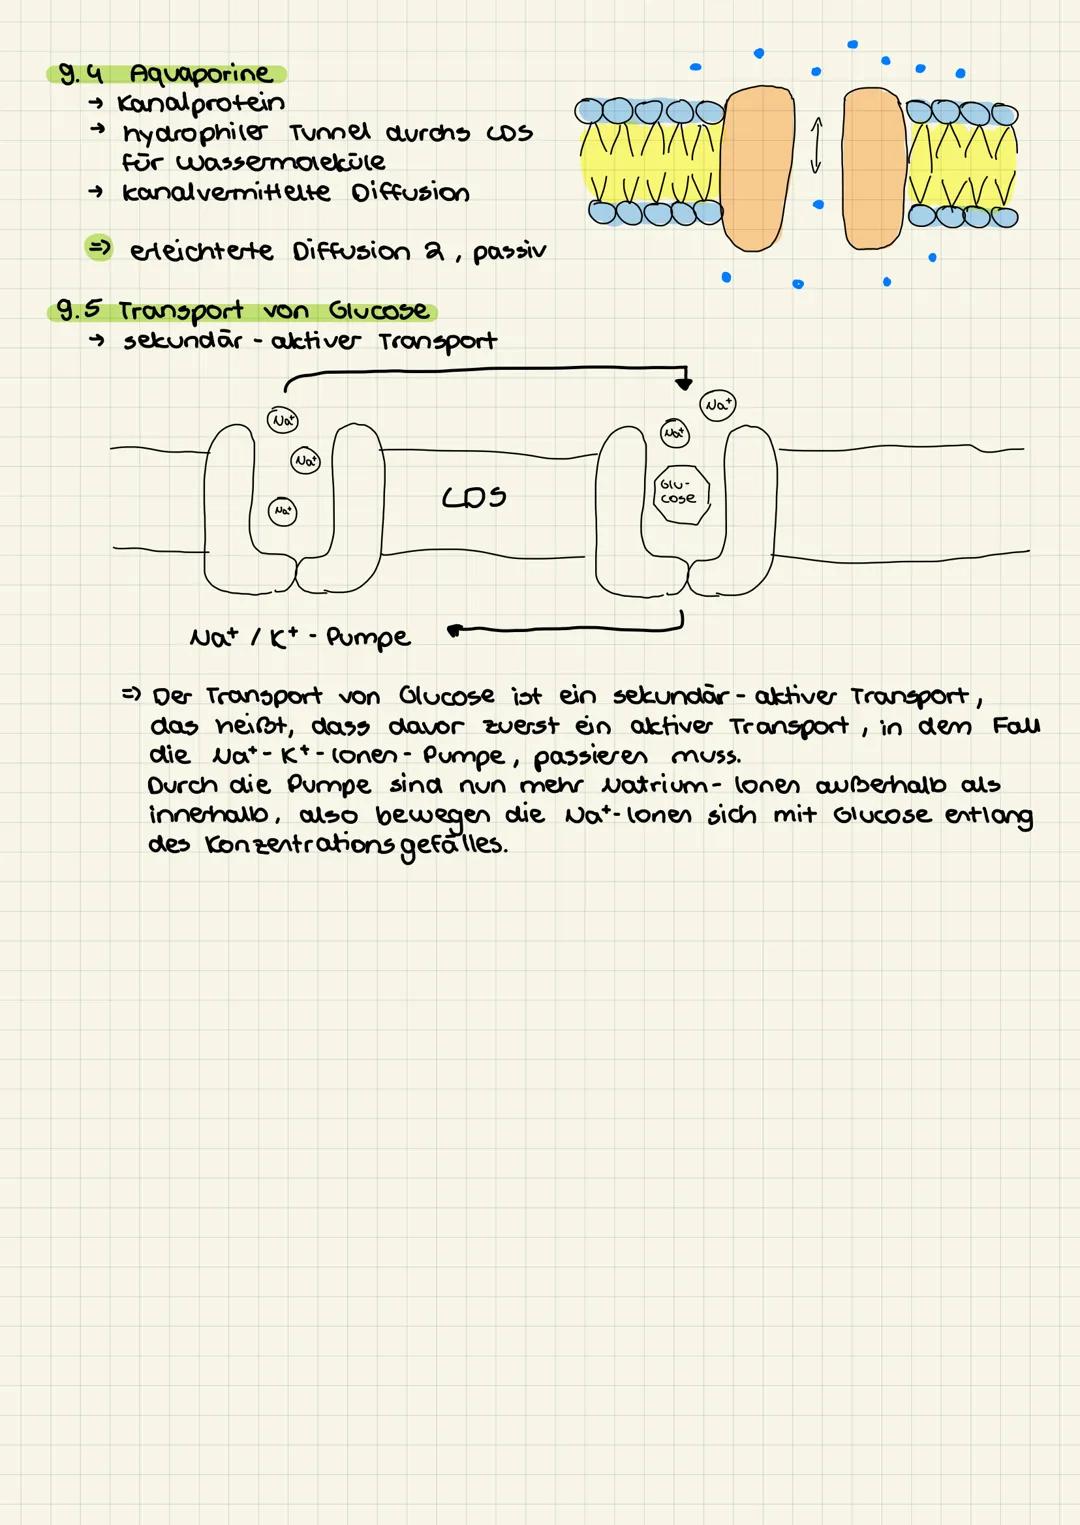 9.4 Aquaporine
→ Kanalprotein
→ hydrophiler Tunnel durchs LDS
für Wassermoleküle
→ kanalvermittelte Diffusion
=> erleichterte Diffusion 2, passiv
9.5 Transport von Glucose
→ sekundär - aktiver Transport
Na+
Na+
Na+
LDS
Na+
Na+
Glu-
cose
Na+ / K+ - Pumpe
=> Der Transport von Glucose ist ein sekundär - aktiver Transport,
das heißt, dass davor zuerst ein aktiver Transport, in dem Fall
die Na+- K+ - Ionen - Pumpe, passieren muss.
Durch die Pumpe sind nun mehr Natrium - Ionen außerhalb als
innerhalb, also bewegen die Na+-Ionen sich mit Glucose entlang
des Konzentrationsgefälles.